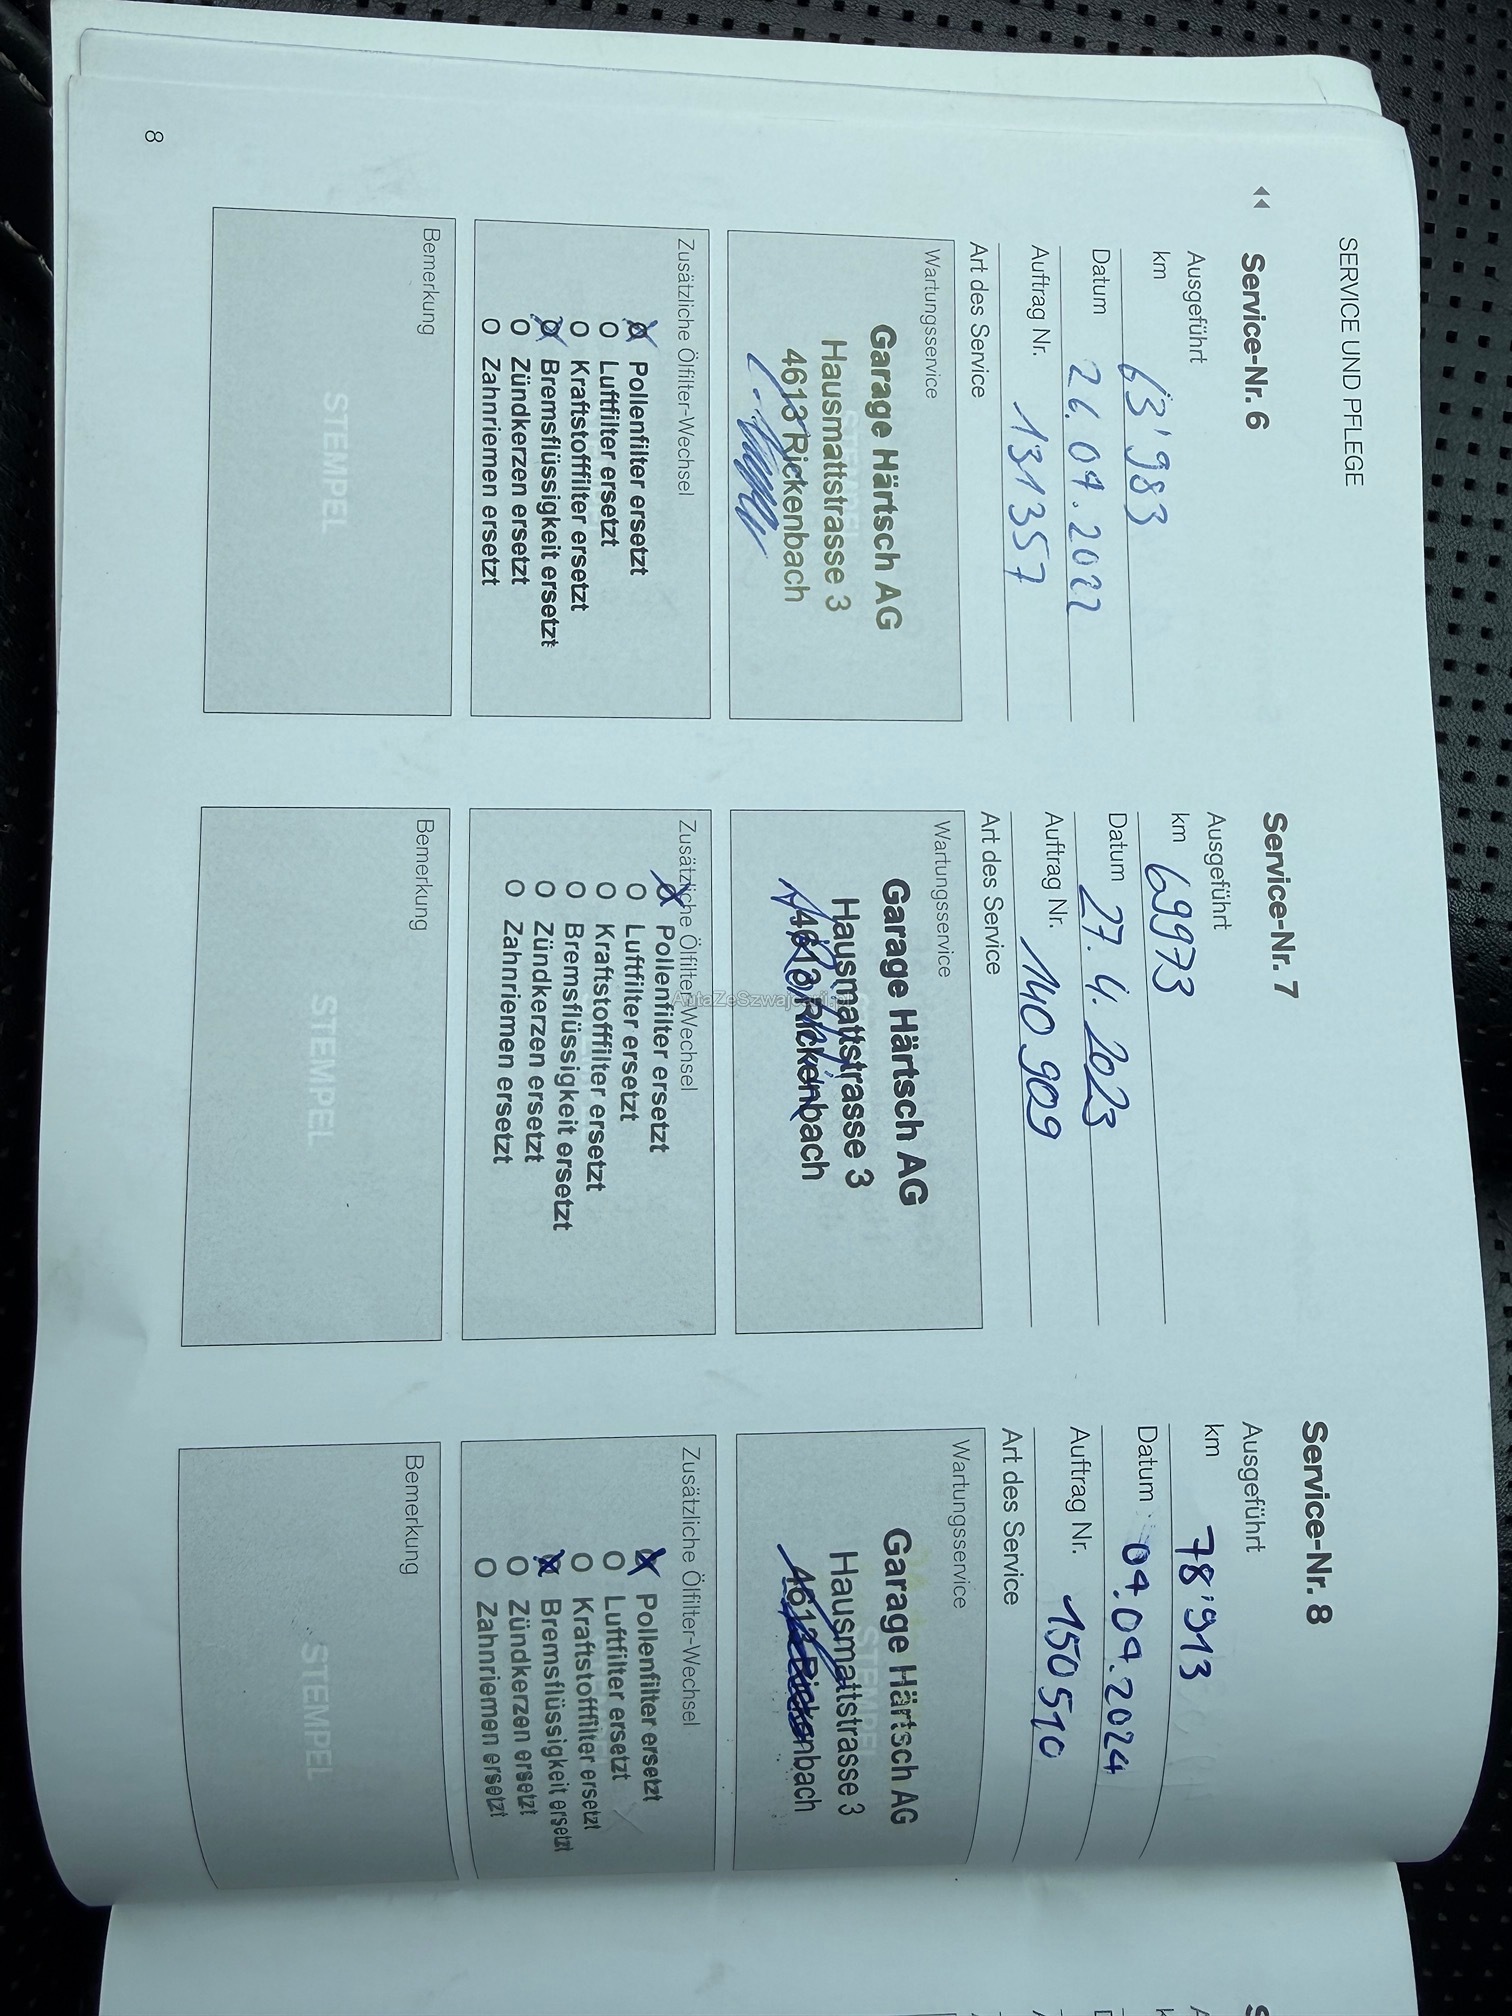 SERVICE UND PFLEGE
Service-Nr. 6
Ausgeführt
km 63'983
Datum 26.04.2022
Auftrag Nr. 131357
Art des Service
Wartungsservice
Garage Härtsch AG
Hausmattstrasse 3
4613 Rickenbach
Zusätzliche Ölfilter-Wechsel
Pollenfilter ersetzt
O Luftfilter ersetzt
O Kraftstofffilter ersetzt
Bremsflüssigkeit ersetzt
O Zündkerzen ersetzt
O Zahnriemen ersetzt
Bemerkung
STEMPEL
Service-Nr. 7
Ausgeführt
km 69973
Datum 27.4.2023
Auftrag Nr. 140909
Art des Service
Wartungsservice
Garage Härtsch AG
Hausmattstrasse 3
4613 Rickenbach
Zusätzliche Ölfilter-Wechsel
Pollenfilter ersetzt
O Luftfilter ersetzt
O Kraftstofffilter ersetzt
O Bremsflüssigkeit ersetzt
O Zündkerzen ersetzt
O Zahnriemen ersetzt
Bemerkung
STEMPEL
Service-Nr. 8
Ausgeführt
km 78'913
Datum 09.04.2024
Auftrag Nr. 150510
Art des Service
Wartungsservice
STEMPEL
Garage Härtsch AG
Hausmattstrasse 3
4613 Rickenbach
Zusätzliche Ölfilter-Wechsel
Pollenfilter ersetzt
O Luftfilter ersetzt
O Kraftstofffilter ersetzt
Bremsflüssigkeit ersetzt
O Zündkerzen ersetzt
O Zahnriemen ersetzt
Bemerkung
STEMPEL
8